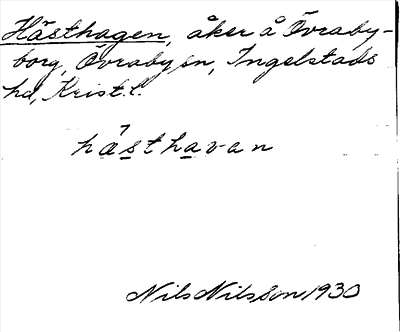 Hästhagen, åker å Övraby-
borg, Övraby sn, Ingelstads
hd, Krist. l.
hästhavan
Nils Nilsson 1930